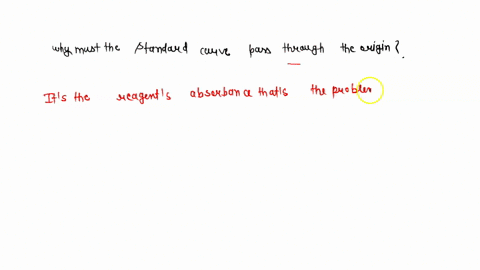 why must the standard curve pass through the origin?.
It's the reagent's absorbance that's the problem